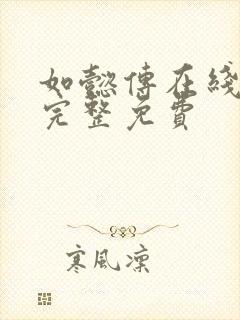 如懿傳在綫
完整免費
寒風凜